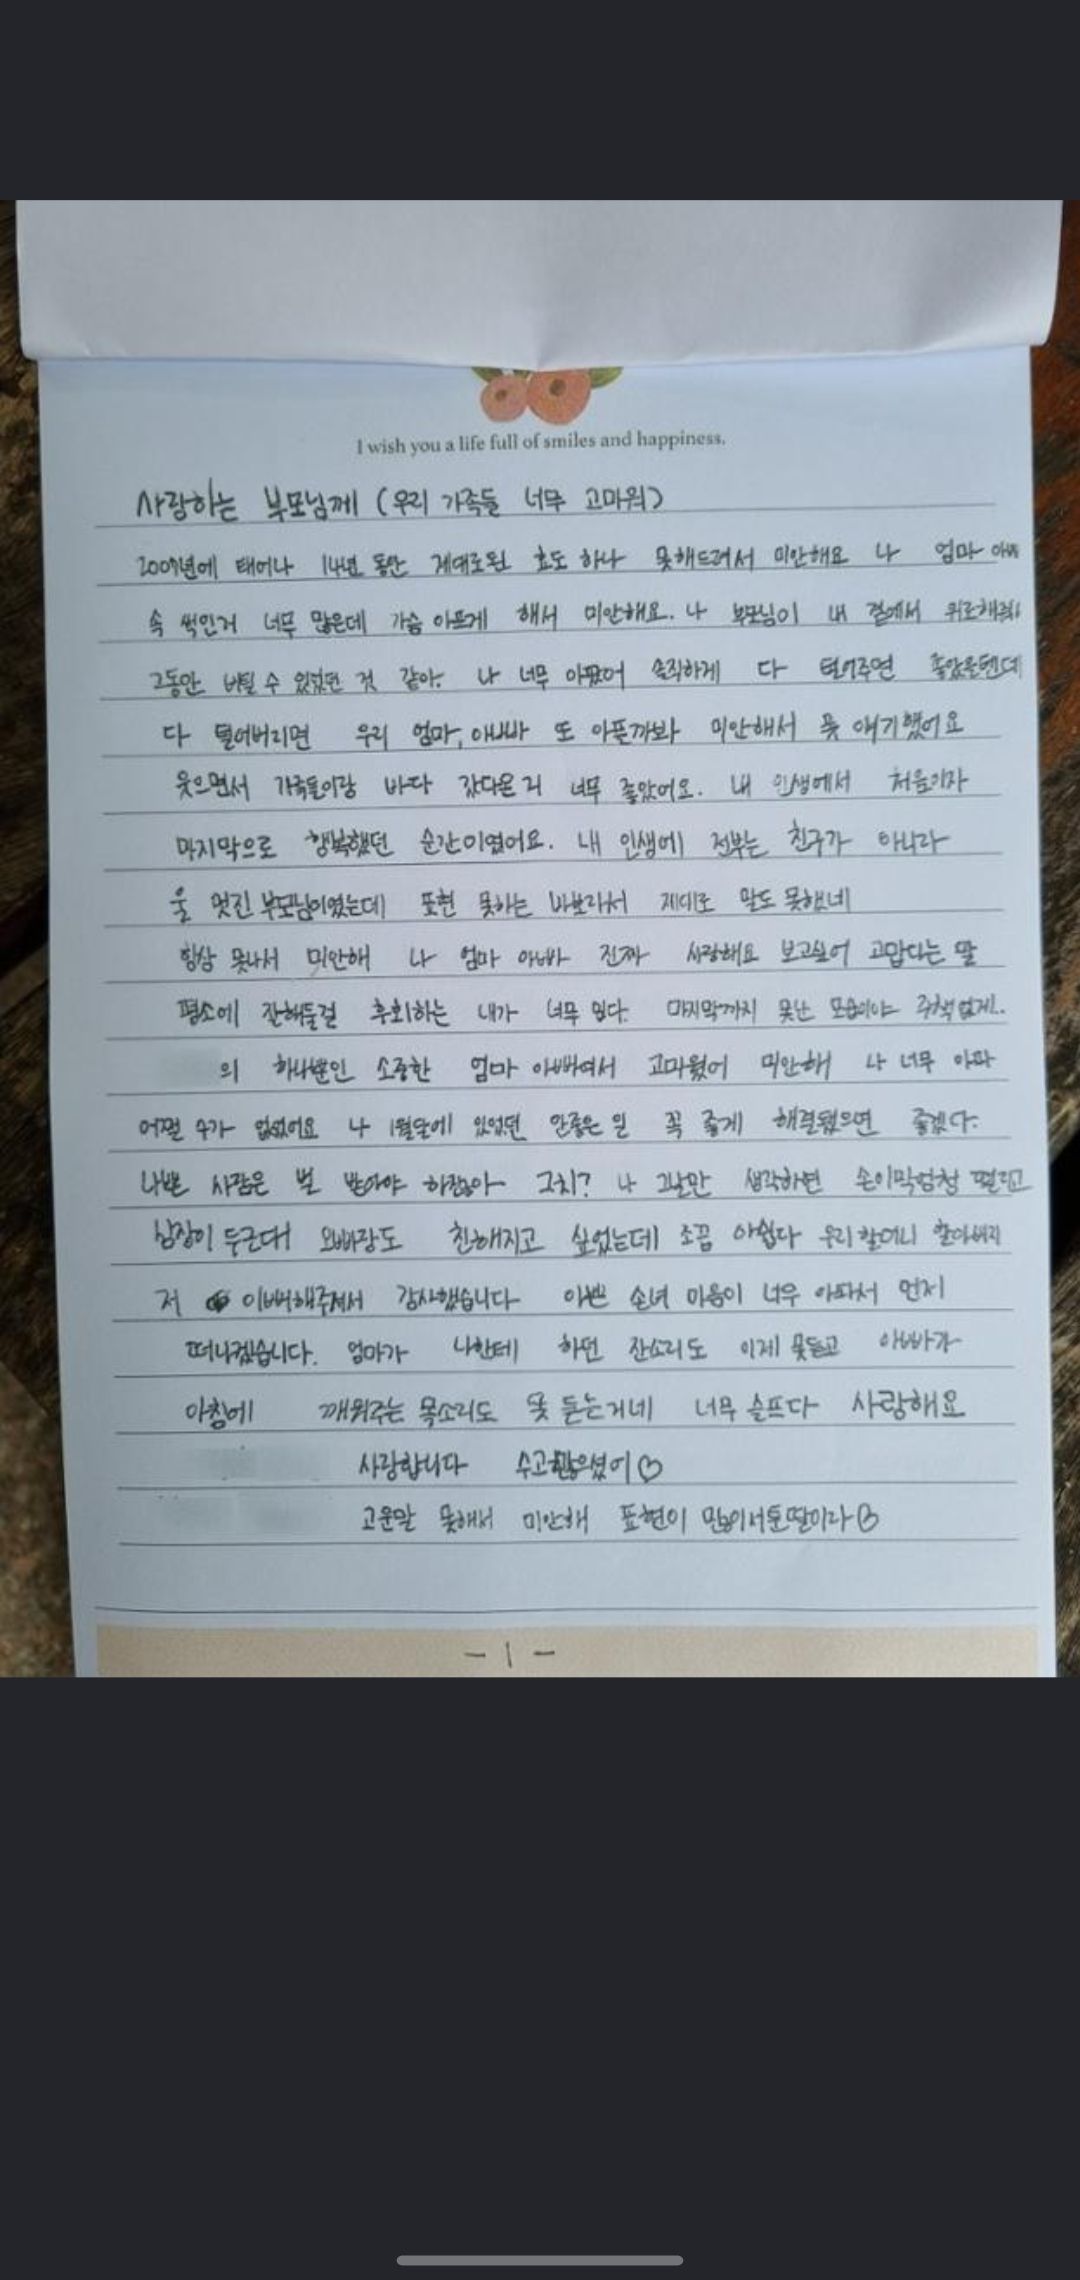 I wish you a life full of smiles and happiness.
사랑하는 부모님께 (우리 가족들 너무 고마워)
2007년에 태어나 14년 동안 제대로된 효도 하나 못해드려서 미안해요 나 엄마 아빠
속 썩인거 너무 많은데 가슴 아프게 해서 미안해요. 나 부모님이 내 곁에서 위로해줘서
그동안 버틸 수 있었던 것 같아. 나 너무 아팠어 솔직하게 다 털어주면 좋았을텐데
다 털어버리면 우리 엄마, 아빠 또 아플까봐 미안해서 못 얘기했어요
웃으면서 가족들이랑 바다 갔다온 거 너무 좋았어요. 내 인생에서 처음이자
마지막으로 행복했던 순간이였어요. 내 인생에 전부는 친구가 아니라
울 멋진 부모님이였는데 표현 못하는 바보라서 제대로 말도 못했네
항상 못나서 미안해 나 엄마 아빠 진짜 사랑해요 보고싶어 고맙다는 말
평소에 잘해둘걸 후회하는 내가 너무 밉다. 마지막까지 못난 모습이야 주책없게.
의 하나뿐인 소중한 엄마 아빠여서 고마웠어 미안해 나 너무 아파
어쩔 수가 없었어요 나 1월달에 있었던 안좋은 일 꼭 좋게 해결됐으면 좋겠다.
나쁜 사람은 벌 받아야 하잖아 그치? 나 그날만 생각하면 손이 막 엄청 떨리고
심장이 두근대 오빠랑도 친해지고 싶었는데 조끔 아쉽다 우리 할머니 할아버지
저 이뻐해주셔서 감사했습니다 이쁜 손녀 마음이 너무 아파서 먼저
떠나겠습니다. 엄마가 나한테 하던 잔소리도 이제 못듣고 아빠가
아침에 깨워주는 목소리도 못 듣는거네 너무 슬프다 사랑해요
사랑합니다 수고많으셨어♡
고운말 못해서 미안해 표현이 많이 서툰 딸이라♡
- 1 -